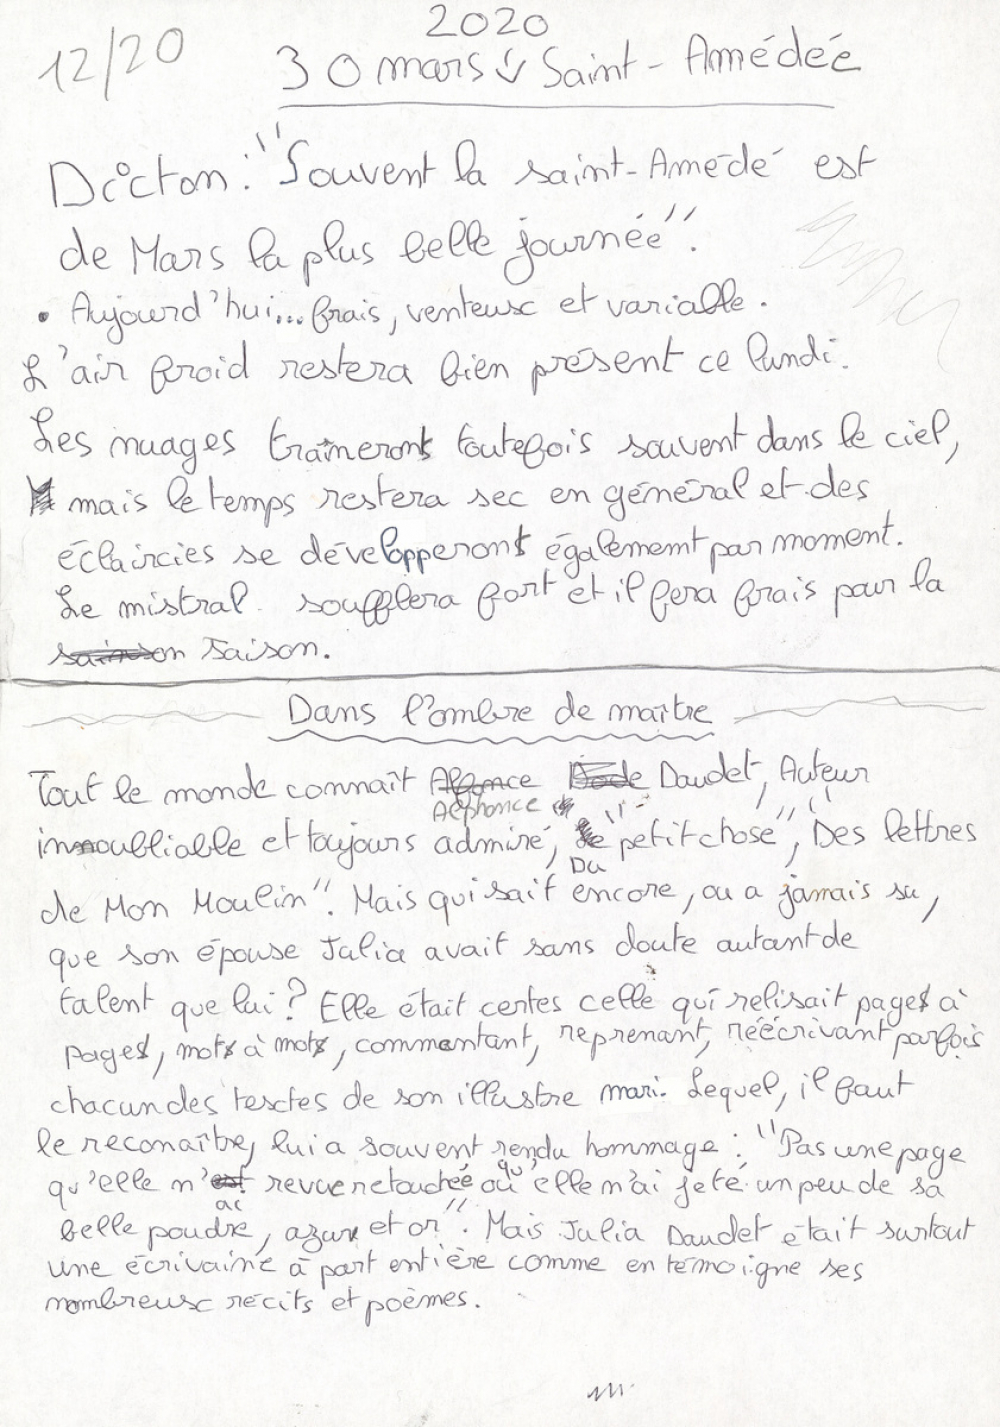 2020
12/20
30 mars Saint-Amédéé
Dicton : "Souvent la saint-Amédé est
de Mars la plus belle journée".
• Aujourd'hui... frais, venteux et variable.
L'air froid restera bien présent ce lundi.
Les nuages traîneront toutefois souvent dans le ciel,
mais le temps restera sec en général et des
éclaircies se développeront également par moment.
Le mistral soufflera fort et il fera frais pour la
saison.
Dans l'ombre de maître
Tout le monde connaît Daudet, Auteur
Alphonce
innoubliable et toujours admiré, "le petit chose", "Des lettres
Du
de Mon Moulin". Mais qui sait encore, ou a jamais su,
que son épouse Julia avait sans doute autant de
talent que lui? Elle était certes celle qui relisait page à
page, mot à mot, commentant, reprenant, réécrivant parfois
chacun des textes de son illustre mari. Lequel, il faut
le reconaître, lui a souvent rendu hommage : "Pas une page
qu'elle n' revue retouchée où qu'elle n'ai jeté un peu de sa
belle poudre, azur et or". Mais Julia Daudet était surtout
une écrivaine à part entière comme en témoigne ses
nombreux récits et poèmes.